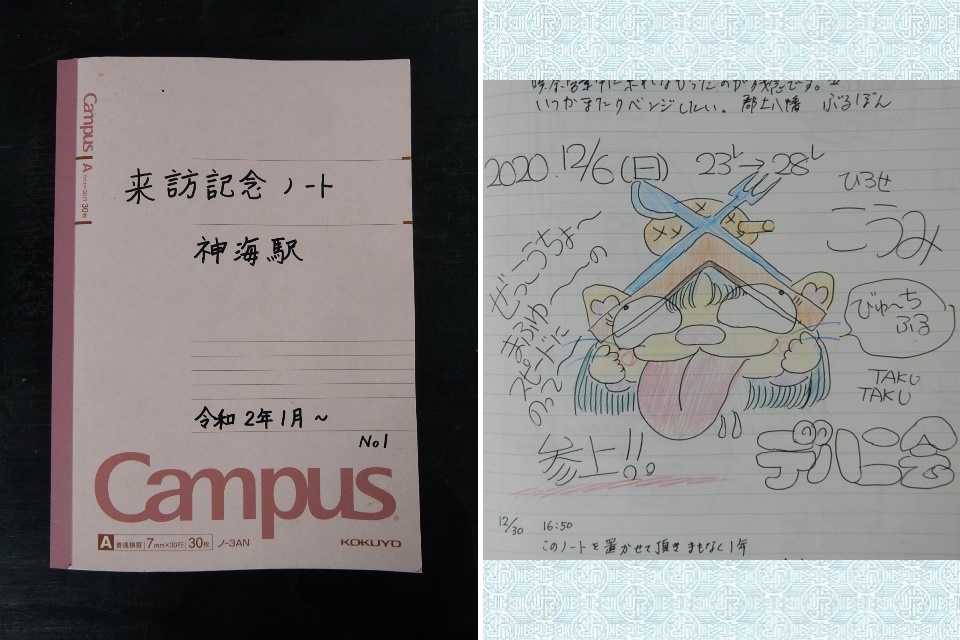 Campus
A 7mm×30行 30枚
来訪記念ノート
神海駅
令和2年1月～
No1
Campus
A 普通横罫 7mm×30行 30枚 ノ-3AN
KOKUYO
いつかまたリベンジしたい。 郡上八幡 ぶるぼん
2020.12/6(日) 23レ→28レ
ひろせ
こうみ
ぜっこうちょ～
の
まふゆ
スピードに
のって
びゅ～ち
ふる
TAKU
TAKU
参上!!
デルヒ会
12/30 16:50
このノートを置かせて頂きまもなく1年